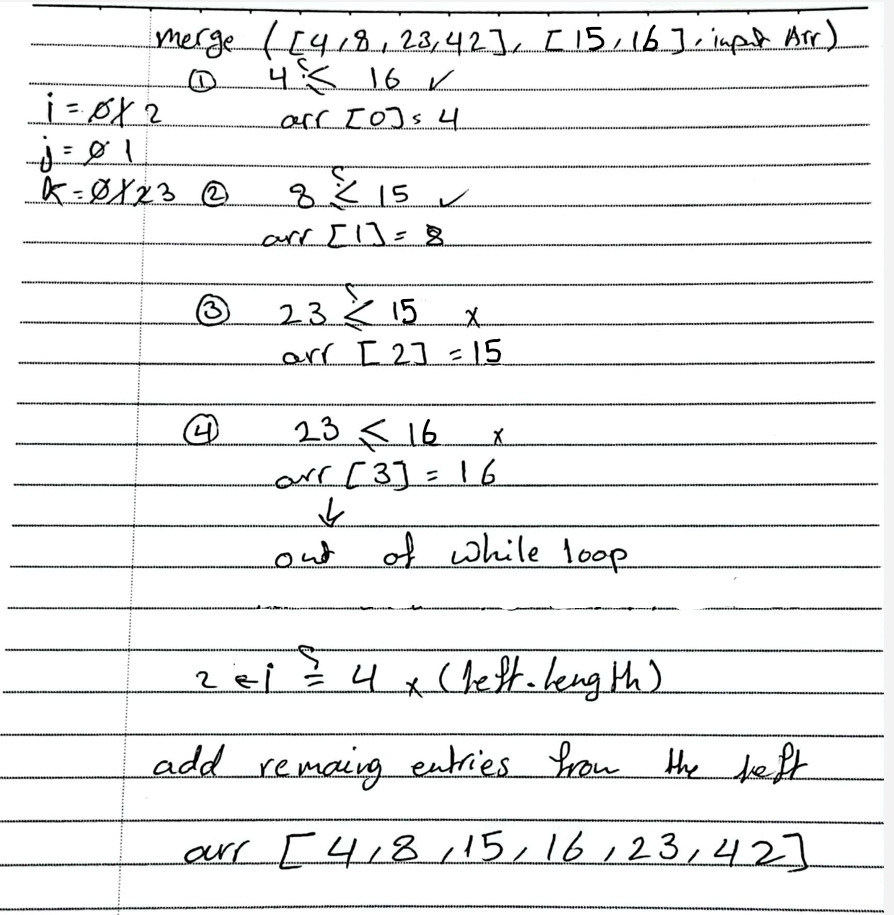 merge ([4,8,23,42], [15,16], input Arr)
① 4 ≤? 16 ✓
i = 0 1 2
arr [0] = 4
j = 0 1
k = 0 1 2 3 ② 8 ≤? 15 ✓
arr [1] = 8
③ 23 ≤? 15 x
arr [2] = 15
④ 23 ≤ 16 x
arr [3] = 16
↓
out of while loop
2 ← i =? 4 x (left.length)
add remaing entries from the left
arr [4,8,15,16,23,42]